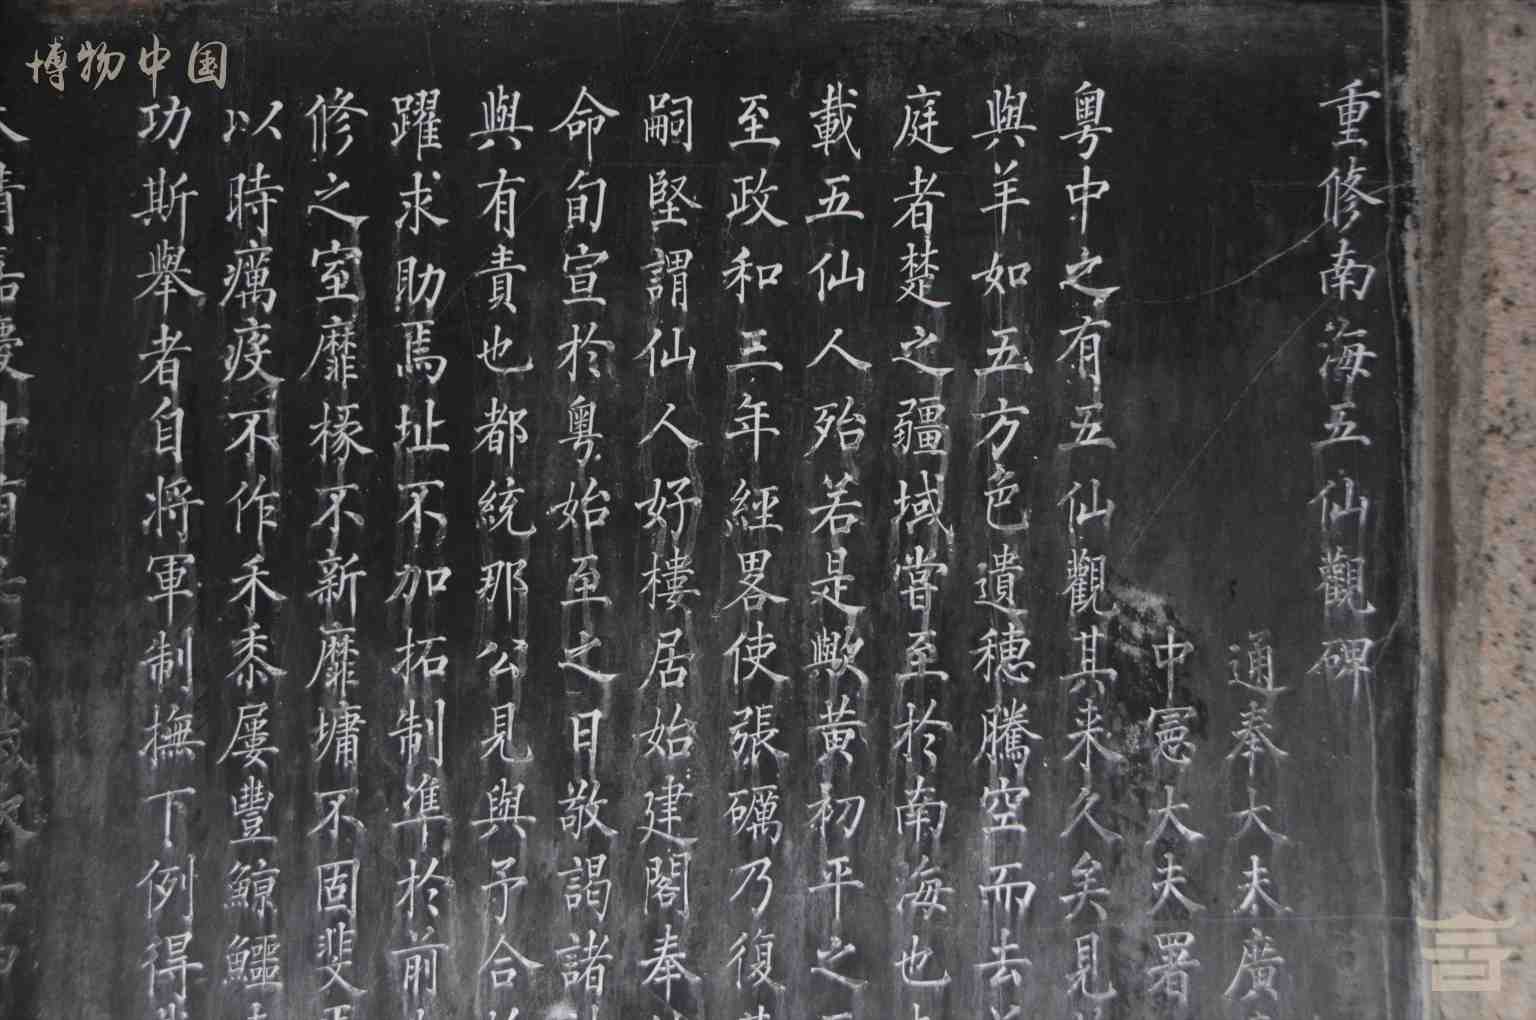 博物中国
重修南海五仙觀碑
通奉大夫廣
中憲大夫署
粵中之有五仙觀其来久矣見
與羊如五方色遺穗騰空而去
庭者楚之疆域嘗至於南海也
載五仙人殆若是歟黄初平之
至政和三年經畧使張礪乃復
嗣堅謂仙人好樓居始建閣奉
命旬宣於粵始至之日敬謁諸
與有責也都統那公見與予合
躍求助焉址不加拓制準於前
修之室靡椽不新靡墉不固斐
以時癘疫不作禾黍屢豐鯨鱷
功斯舉者自将軍制撫下例得